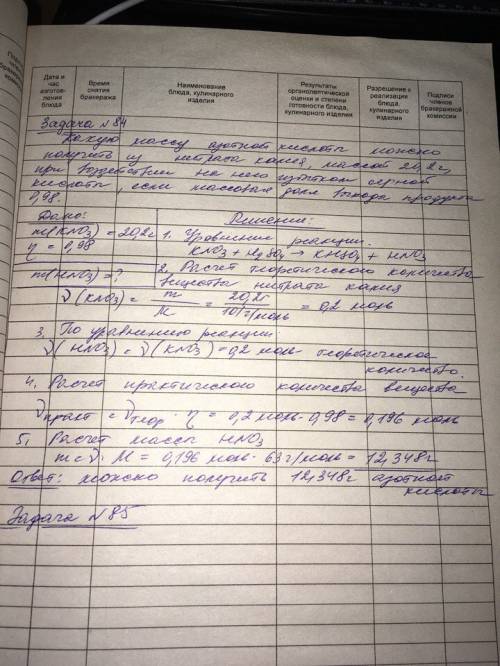 Дата и час изготов- ления блюда
Время снятия бракеража
Наименование блюда, кулинарного изделия
Результаты органолептической оценки и степени готовности блюда, кулинарного изделия
Разрешение к реализации блюда, кулинарного изделия
Подписи членов бракеражной комиссии
Задача №84
Какую массу азотной кислоты можно
получить из нитрата калия, массой 20,2г,
при воздействии на него избытком серной
кислоты, если массовая доля выхода продукта
0,98.
Дано:
Решение:
m(KNO3) = 20,2г
1. Уравнение реакции.
η = 0,98
KNO3 + H2SO4 → KHSO4 + HNO3
m(HNO3) = ?
2. Расчет теоретического количества
вещества нитрата калия
ν(KNO3) = m / M = 20,2г / 101г/моль = 0,2 моль
3. По уравнению реакции:
ν(HNO3) = ν(KNO3) = 0,2 моль - теоретическое
количество.
4. Расчет практического количества вещества
νпракт = νтеор · η = 0,2 моль · 0,98 = 0,196 моль
5. Расчет массы HNO3
m = ν · M = 0,196 моль · 63 г/моль = 12,348г
Ответ: можно получить 12,348г азотной
кислоты
Задача №85